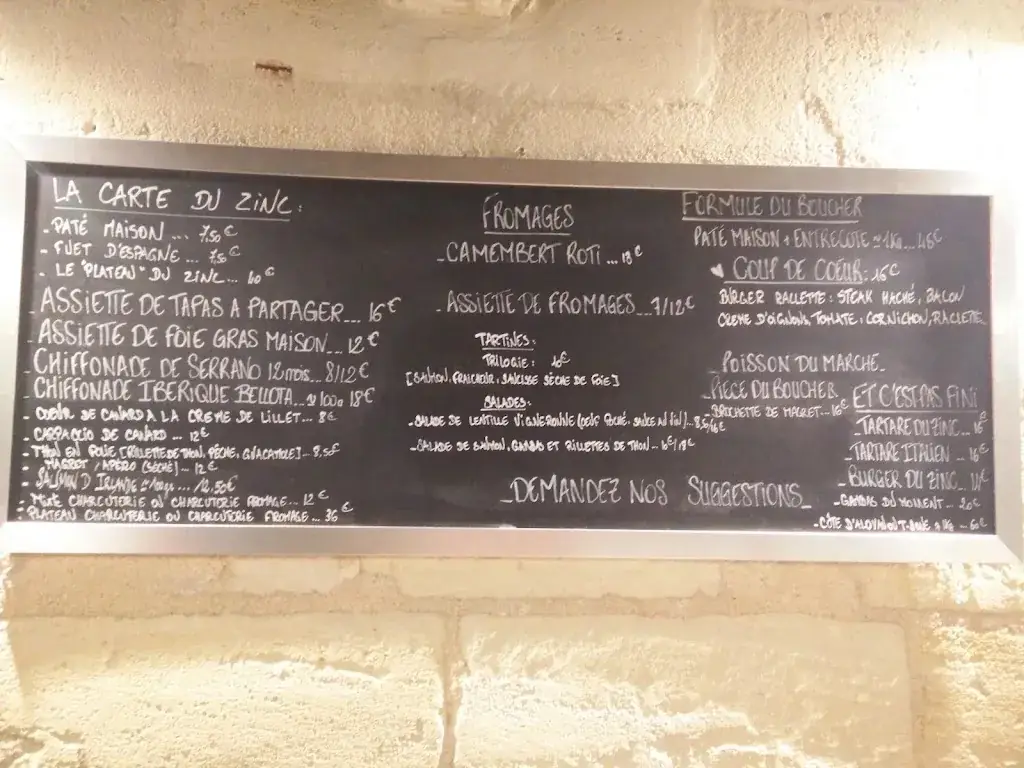 LA CARTE DU ZINC:
- PATÉ MAISON ... 7,50€
- FUET D'ESPAGNE ... 7,5€
- LE "PLATEAU" DU ZINC...
ASSIETTE DE TAPAS A PARTAGER... 16€
- ASSIETTE DE FOIE GRAS MAISON... 12€
- CHIFFONADE DE SERRANO 12 mois... 8/12€
- CHIFFONADE IBERIQUE BELLOTA... 100g 18€
- COEUR DE CANARD A LA CREME DE LILLET... 8€
- CARPACCIO DE CANARD ... 12€
- THON EN [RILLETTE DE THON, PÊCHE, GUACAMOLE]... 8.50€
- MAGRET / APERO (SÉCHÉ)... 12€
- SAUMON D'IRLANDE ... 12,50€
- MIXTE CHARCUTERIE OU CHARCUTERIE FROMAGE... 12€
- PLATEAU CHARCUTERIE OU CHARCUTERIE FROMAGE... 36€
FROMAGES
- CAMEMBERT ROTI ... 13€
- ASSIETTE DE FROMAGES... 7/12€
TARTINES:
TRILOGIE: 10€
[SAUMON, FRAICHEUR, SAUCISSE SECHE DE FOIE]
SALADES:
- SALADE DE LENTILLE VIGNERONNE (OEUF POCHÉ, SAUCE AU VIN)...
- SALADE DE SAUMON, GAMBAS ET RILLETTES DE THON...
_DEMANDEZ NOS SUGGESTIONS_
FORMULE DU BOUCHER
PATÉ MAISON + ENTRECOTE ≃ 1Kg... 46€
♥ COUP DE COEUR: 16€
BURGER RACLETTE: STEAK HACHÉ, BACON
CREME D'OIGNONS, TOMATE, CORNICHON, RACLETTE
- POISSON DU MARCHE_
- PIÈCE DU BOUCHER
- BROCHETTE DE MAGRET... 16€
ET C'EST PAS FINI
- TARTARE DU ZINC... 16€
- TARTARE ITALIEN ... 16€
- BURGER DU ZINC...
- GAMBAS DU MOMENT... 20€
- CÔTE D'ALOYAU OU T-BONE 1 KG... 60€